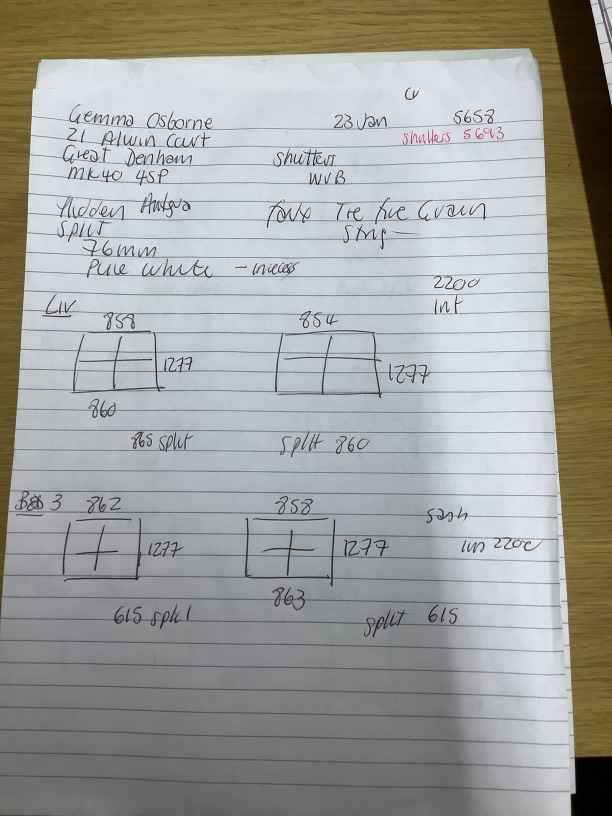 CU
Gemma Osborne 23 Jan 5658
21 Alwin Court shutters 5693
Great Denham shutters
MK40 4SP WVB
Hidden Antigua
Split Grain
76mm
Pure White - in recess
2200
Int
Liv 858 854
1277 1277
860
865 split split 860
Bed 3 862 858
sash
1277 1277 2200
863
615 split split 615